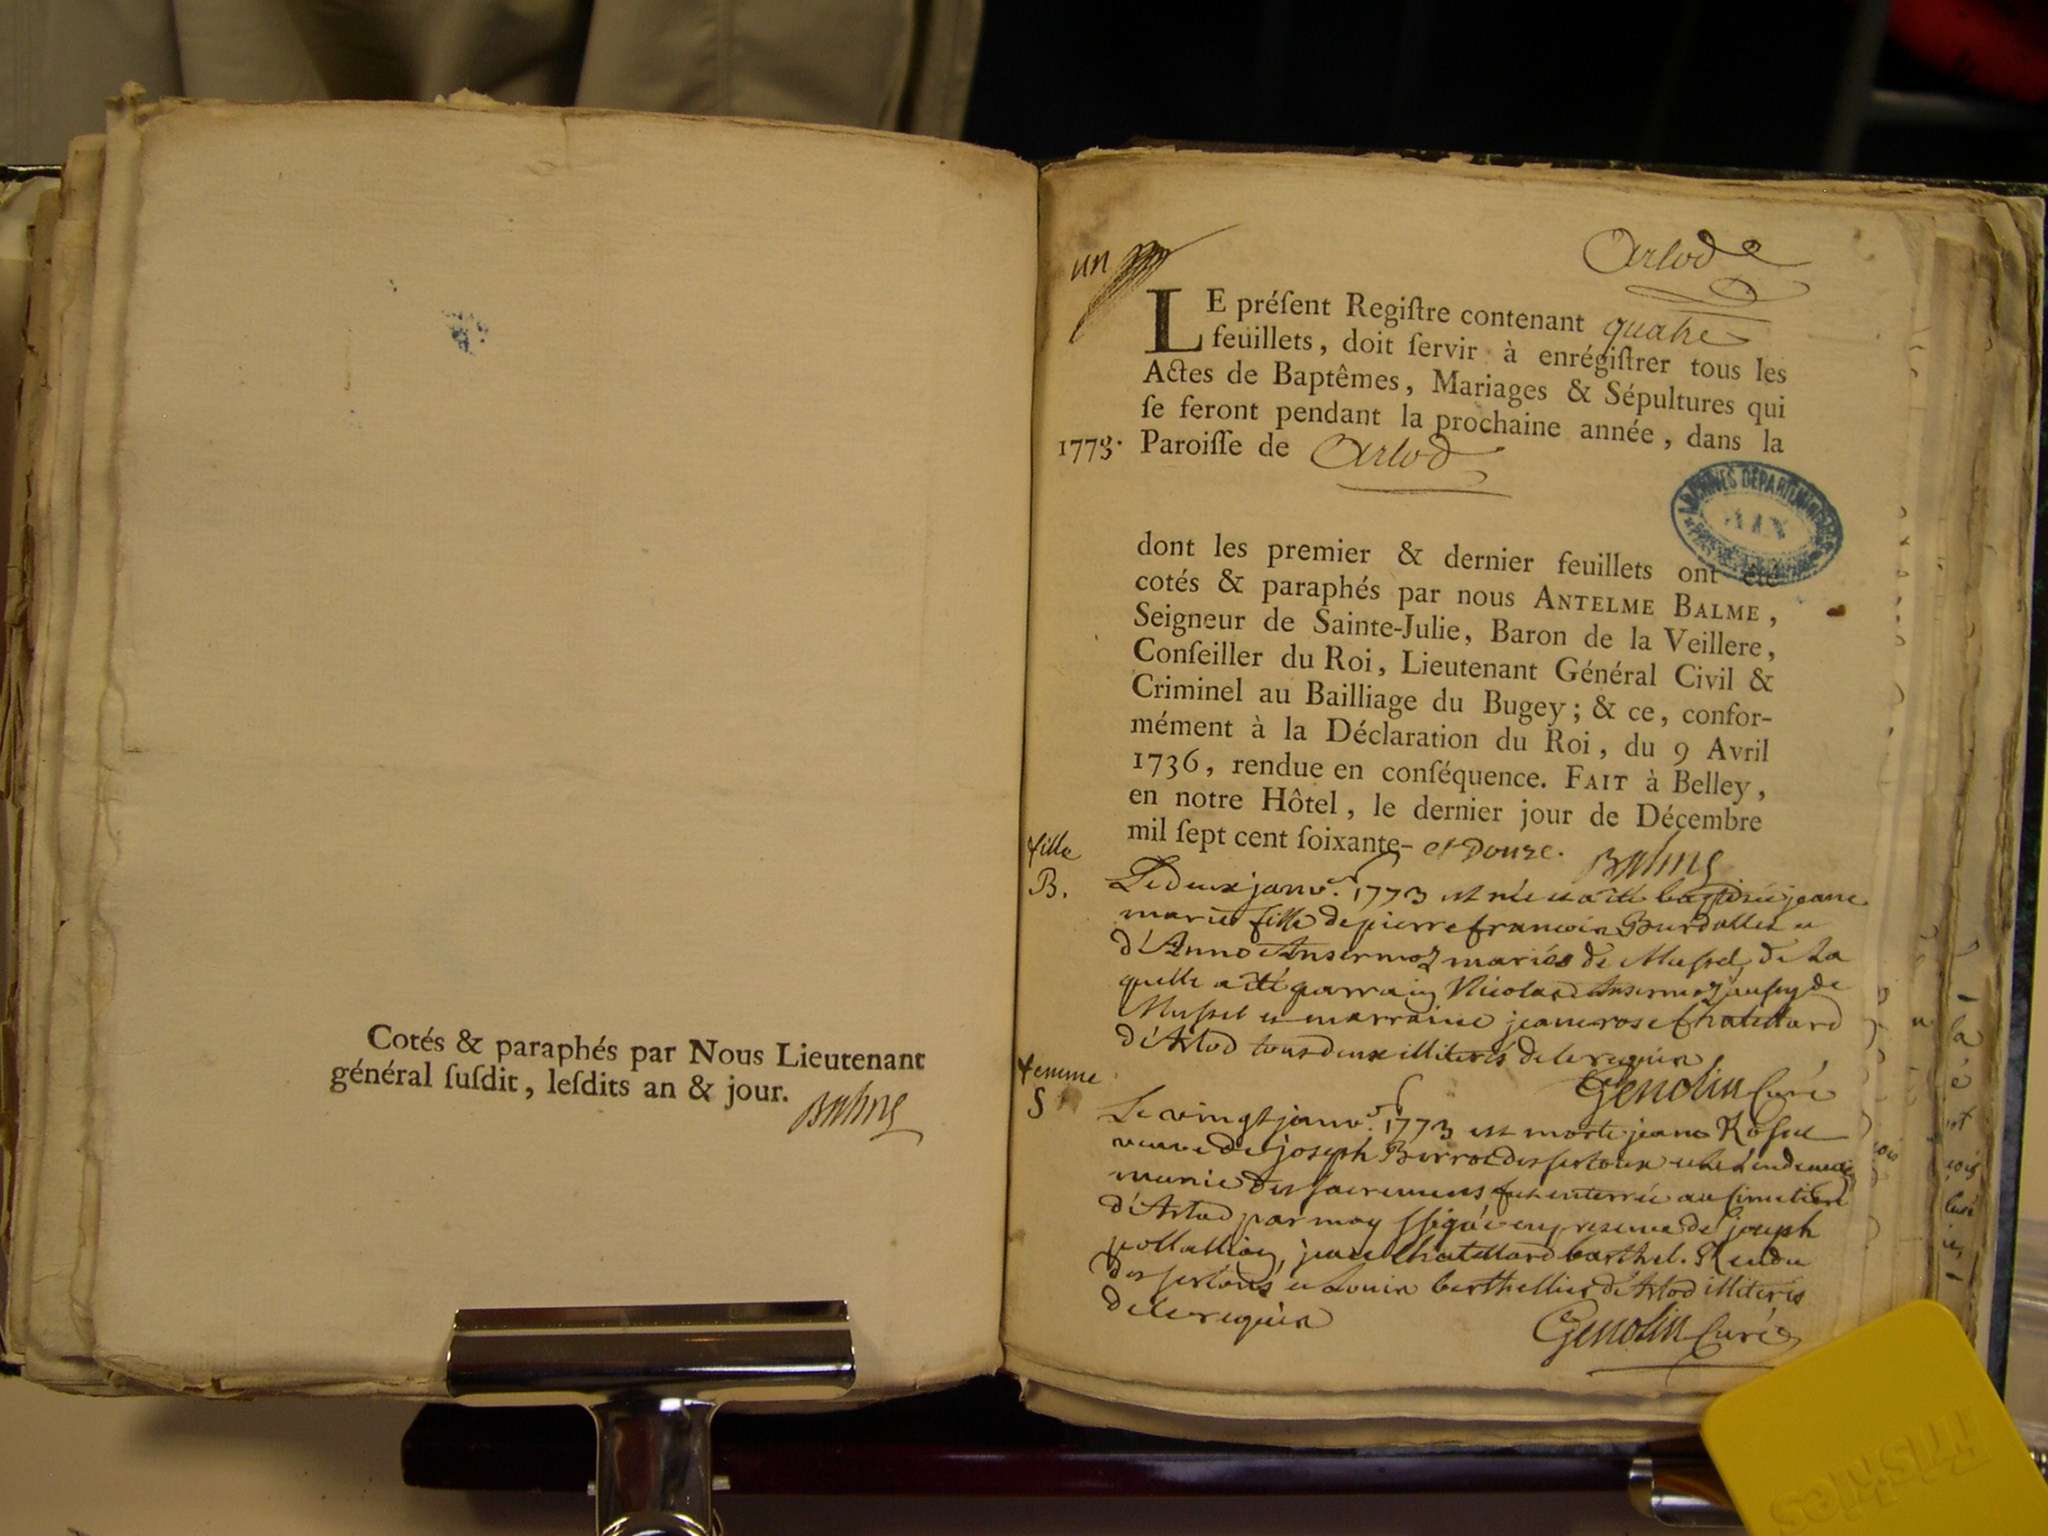 Cotés & paraphés par Nous Lieutenant
général ſuſdit, leſdits an & jour.
Balme
un
Arlod
LE préſent Regiſtre contenant quatre
feuillets, doit ſervir à enrégiſtrer tous les
Actes de Baptêmes, Mariages & Sépultures qui
ſe feront pendant la prochaine année, dans la
1773. Paroiſſe de Arlod
ARCHIVES DÉPARTEMENTALES
AIN
dont les premier & dernier feuillets ont été
cotés & paraphés par nous ANTELME BALME,
Seigneur de Sainte-Julie, Baron de la Veillere,
Conſeiller du Roi, Lieutenant Général Civil &
Criminel au Bailliage du Bugey; & ce, confor-
mément à la Déclaration du Roi, du 9 Avril
1736, rendue en conſéquence. FAIT à Belley,
en notre Hôtel, le dernier jour de Décembre
mil ſept cent ſoixante- et Douze.
Balme
fille
B.
Le deux janv.r 1773 est née et a été baptisée jeane
marie fille de pierre francois Burdallet et
d'Anne Ansermoz mariés de Mussel, de la
quelle a été parrain Nicolas Ansermoz aussy de
Mussel et marraine jeane rose Chatellard
d'Arlod tous deux illiterés de ce requis
Genolin Curé
femme
S
Le vingt janv.r 1773 est morte jeane Rosset
veuve de joseph Borrat des sertoux et le lendemain
munie des sacremens fut enterrée au simetiere
d'Arlod par moy ssigné en presence de joseph
pollallion, jean Chatellard barthel. Rendu
des sertoux et Louis berthellier d'Arlod illiterés
de ce requis
Genolin Curé
Friskies